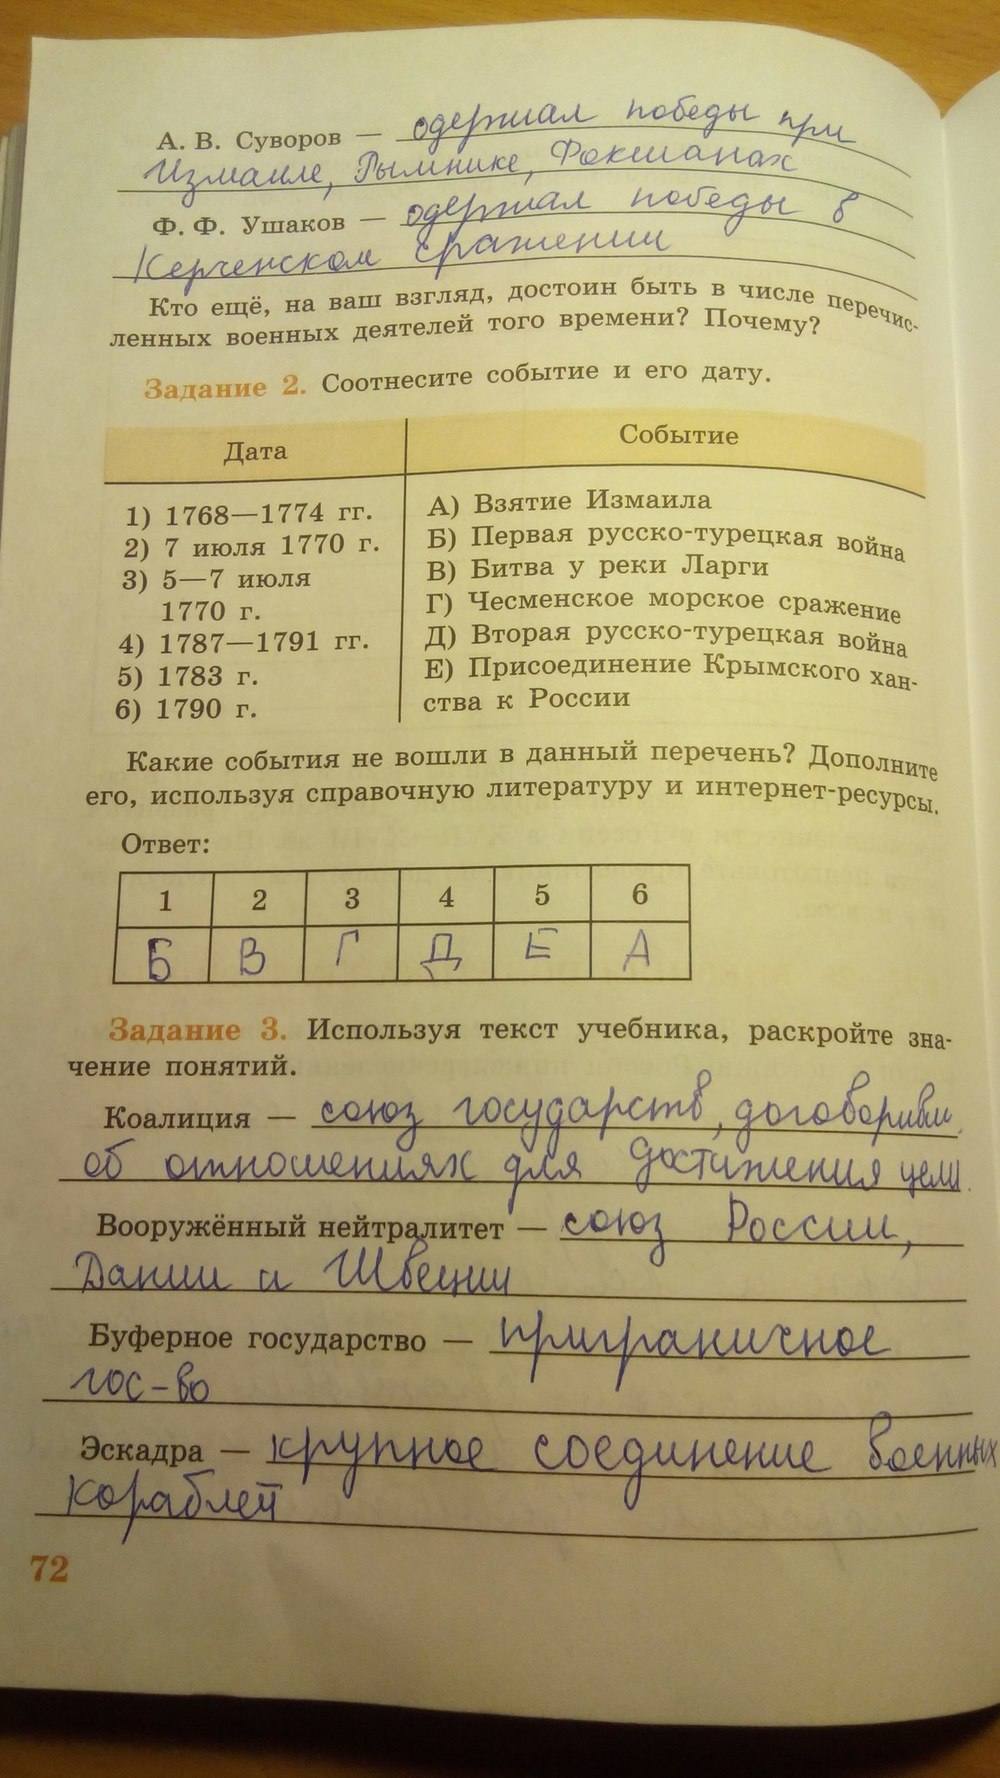 А. В. Суворов — одержал победы при
Измаиле, Рымнике, Фокшанах
Ф. Ф. Ушаков — одержал победы в
Керченском сражении
Кто ещё, на ваш взгляд, достоин быть в числе перечис-
ленных военных деятелей того времени? Почему?
Задание 2. Соотнесите событие и его дату.
Дата
Событие
1) 1768—1774 гг.
2) 7 июля 1770 г.
3) 5—7 июля
1770 г.
4) 1787—1791 гг.
5) 1783 г.
6) 1790 г.
А) Взятие Измаила
Б) Первая русско-турецкая война
В) Битва у реки Ларги
Г) Чесменское морское сражение
Д) Вторая русско-турецкая война
Е) Присоединение Крымского хан-
ства к России
Какие события не вошли в данный перечень? Дополните
его, используя справочную литературу и интернет-ресурсы.
Ответ:
1 2 3 4 5 6
Б В Г Д Е А
Задание 3. Используя текст учебника, раскройте зна-
чение понятий.
Коалиция — союз государств,
об отношениях для достижения цели.
Вооружённый нейтралитет — союз России,
Дании и Швеции
Буферное государство — приграничное
гос-во
Эскадра — крупное соединение военных
кораблей
72